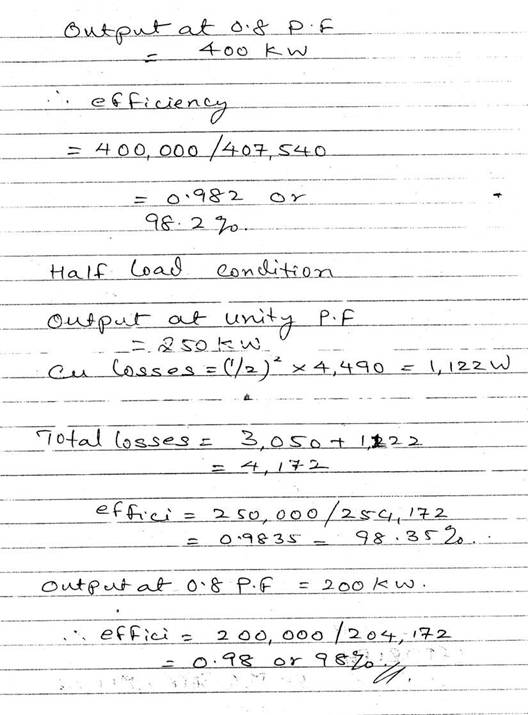 Output at 0.8 P.F
= 400 KW
∴ efficiency
= 400,000 / 407,540
= 0.982 or
98.2%.
Half Load condition
Output at unity P.F
= 250 KW
Cu losses = (1/2)² × 4,490 = 1,122 W
Total losses = 3,050 + 1,122
= 4,172
effici = 250,000 / 254,172
= 0.9835 = 98.35%.
Output at 0.8 P.F = 200 KW.
∴ effici = 200,000 / 204,172
= 0.98 or 98%